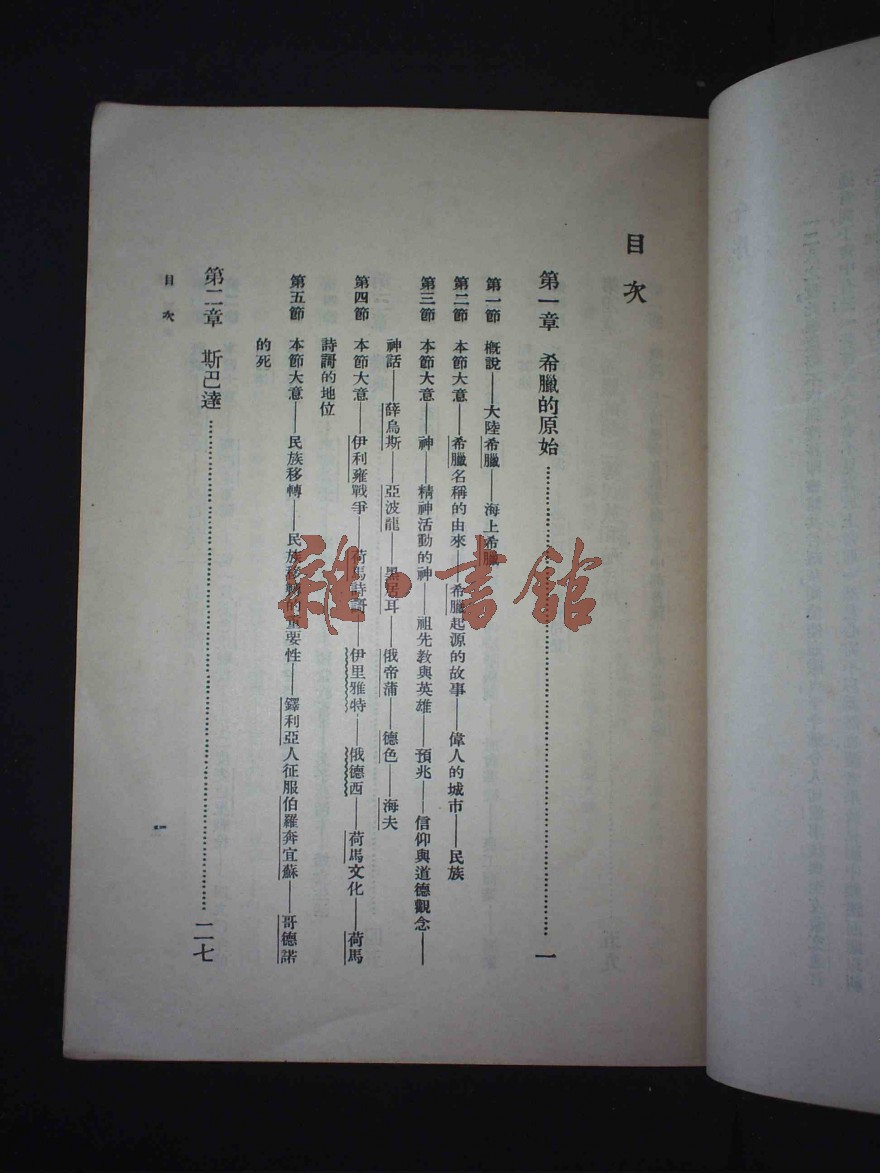 目次
第一章　希臘的原始…………一
第一節　概說——大陸希臘——海上希臘
第二節　本節大意——希臘名稱的由來——希臘起源的故事——偉人的城市——民族
第三節　本節大意——神——精神活動的神——祖先教與英雄——預兆——信仰與道德觀念——
神話——薛烏斯——亞波龍——黑居耳——俄帝蒲——德色——海夫
第四節　本節大意——伊利雍戰爭——荷馬詩謌——伊里雅特——俄德西——荷馬文化——荷馬
詩謌的地位
第五節　本節大意——民族移轉——民族移轉的重要性——鐸利亞人征服伯羅奔宜蘇——哥德諾
的死
第二章　斯巴達…………二七
目次
一
雜·書館